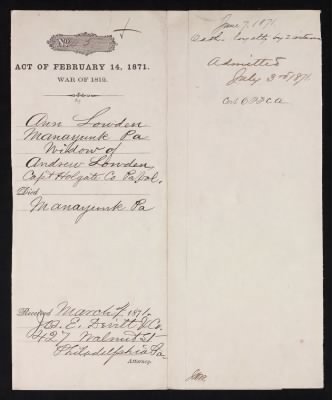 No
ACT OF FEBRUARY 14, 1871.
WAR OF 1812.
Ann Lowden
Manayunk Pa
Widow of
Andrew Lowden
Capt Holgate Co Pa Vol.
Died
Manayunk Pa
Received March 9, 1871,
Jos. E. Devitt & Co.
427 Walnut St
Philadelphia Pa
Attorney.
June 7, 1871
Oath loyalty by 2 witnesses
Admitted
July 3rd 1871